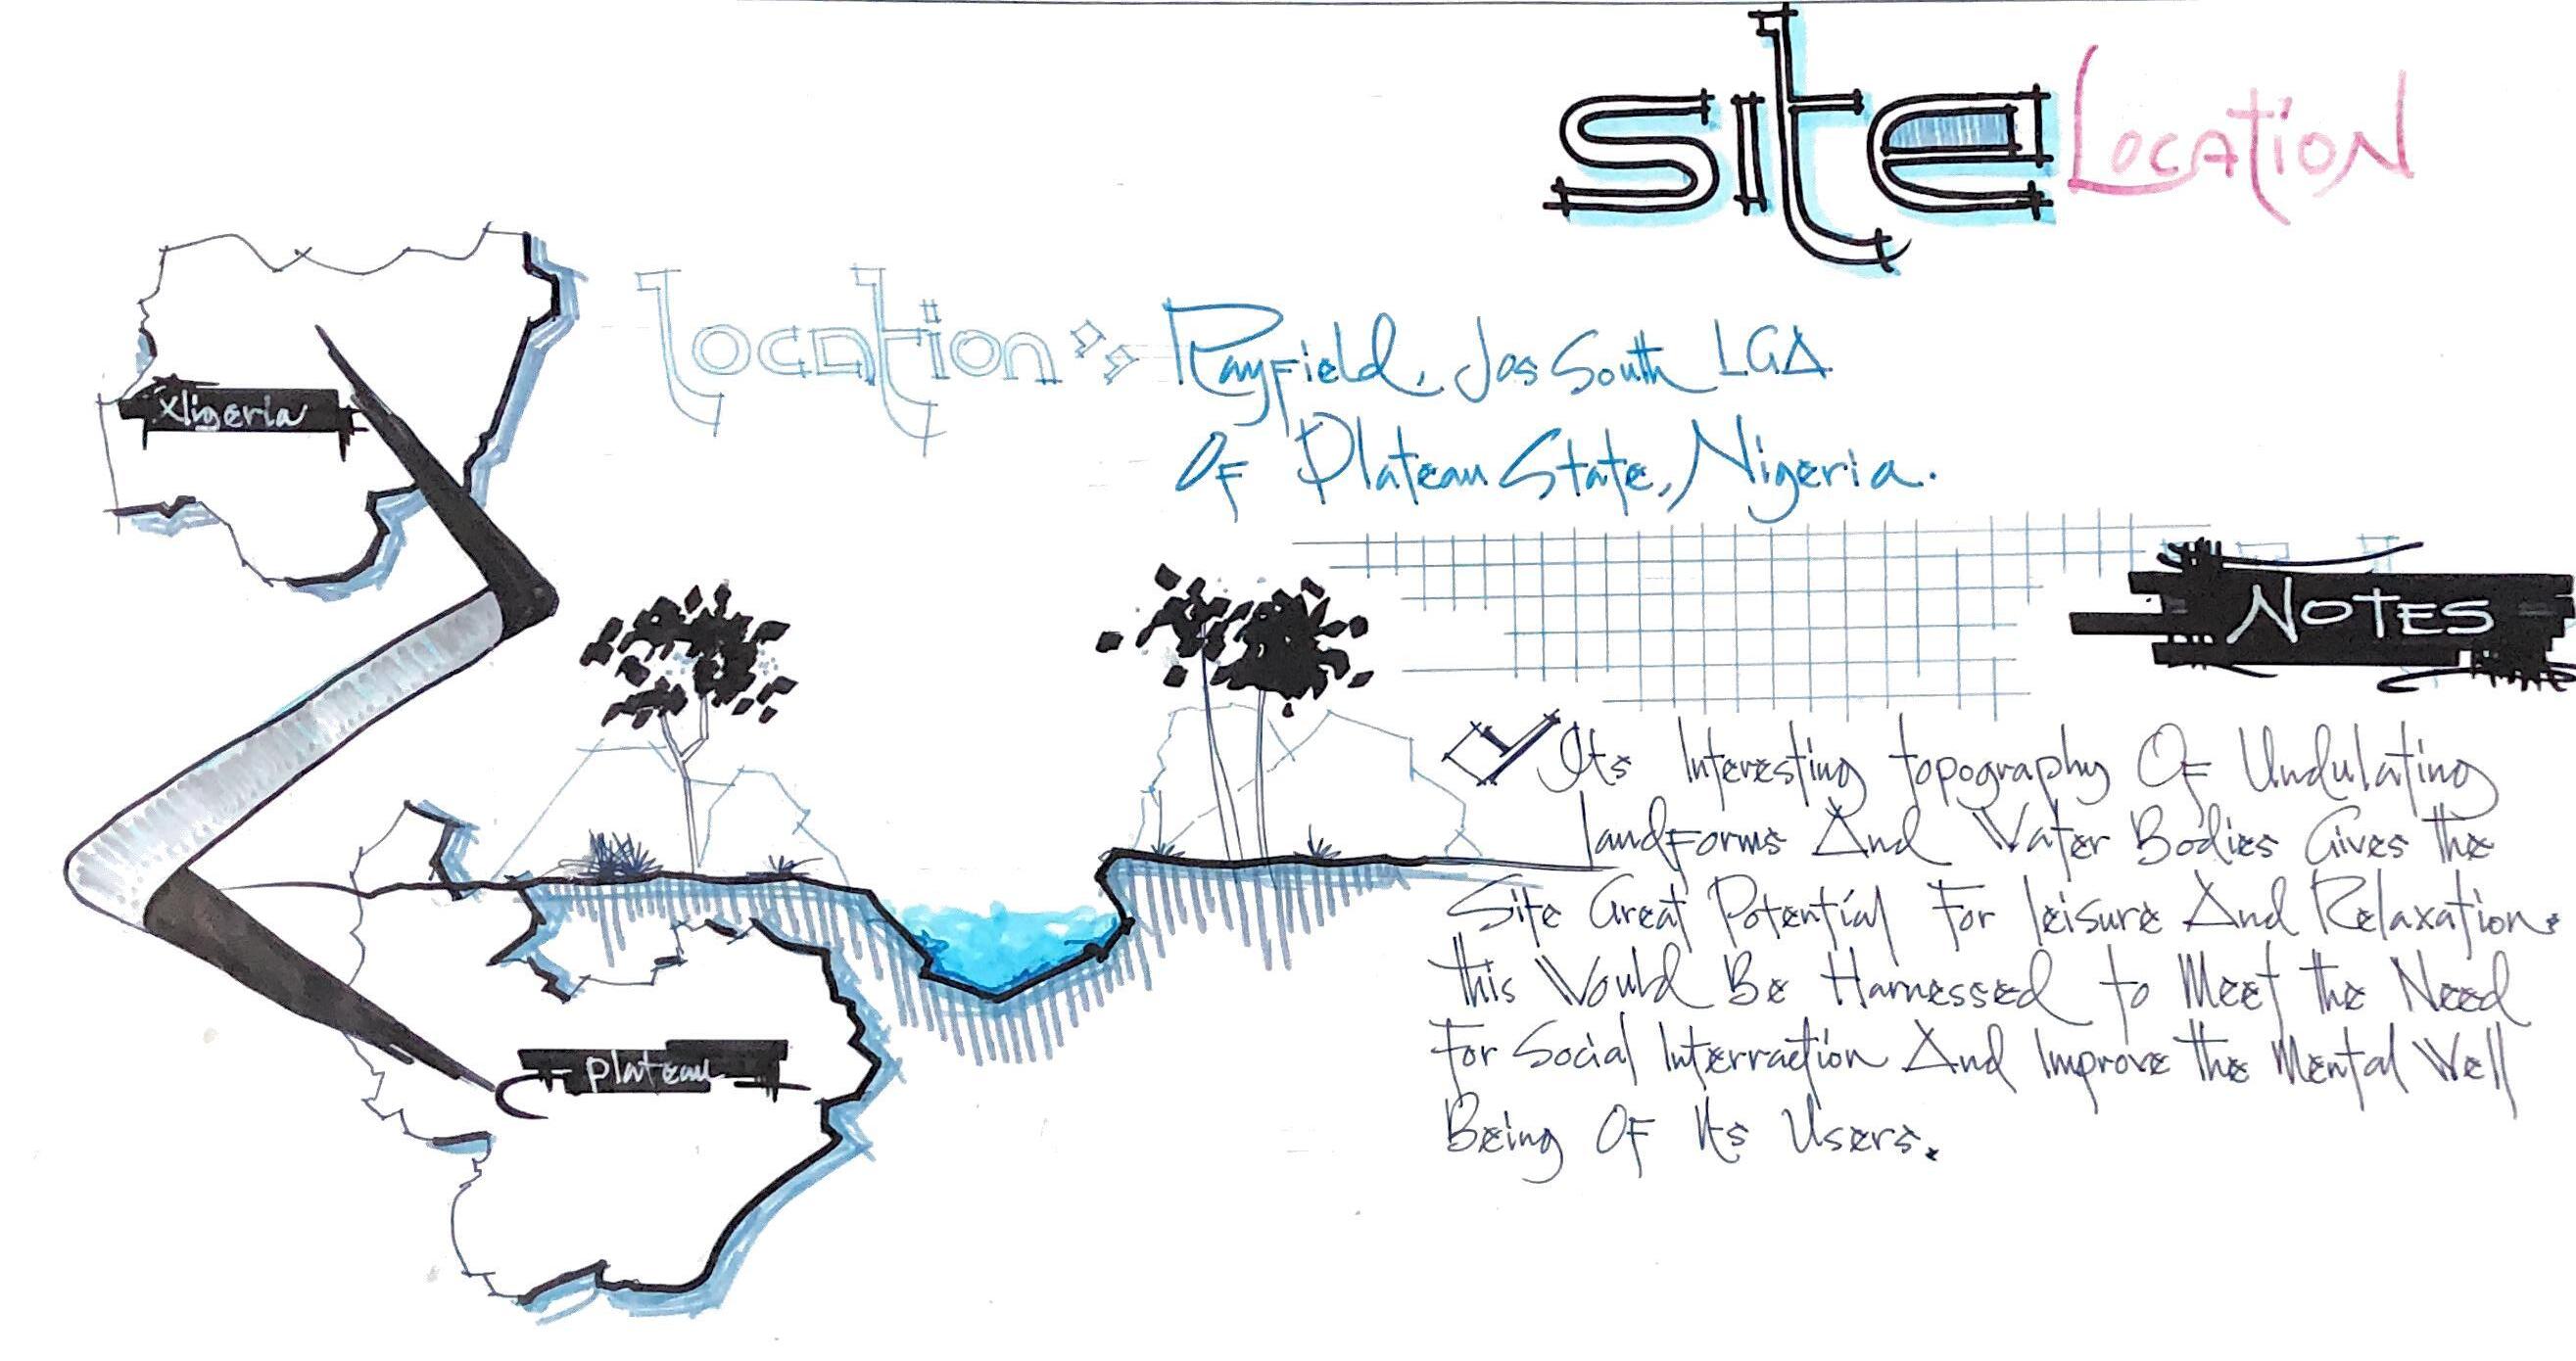 site Location
Location: Rayfield, Jos South LGA
Of Plateau State, Nigeria.
Nigeria
NOTES
Its Interesting topography Of Undulating
landforms And Water Bodies Gives the
Site Great Potential For leisure And Relaxation.
this Would Be Harnessed to Meet the Need
For Social Interraction And Improve the Mental Well
Being Of Its Users.
plateau